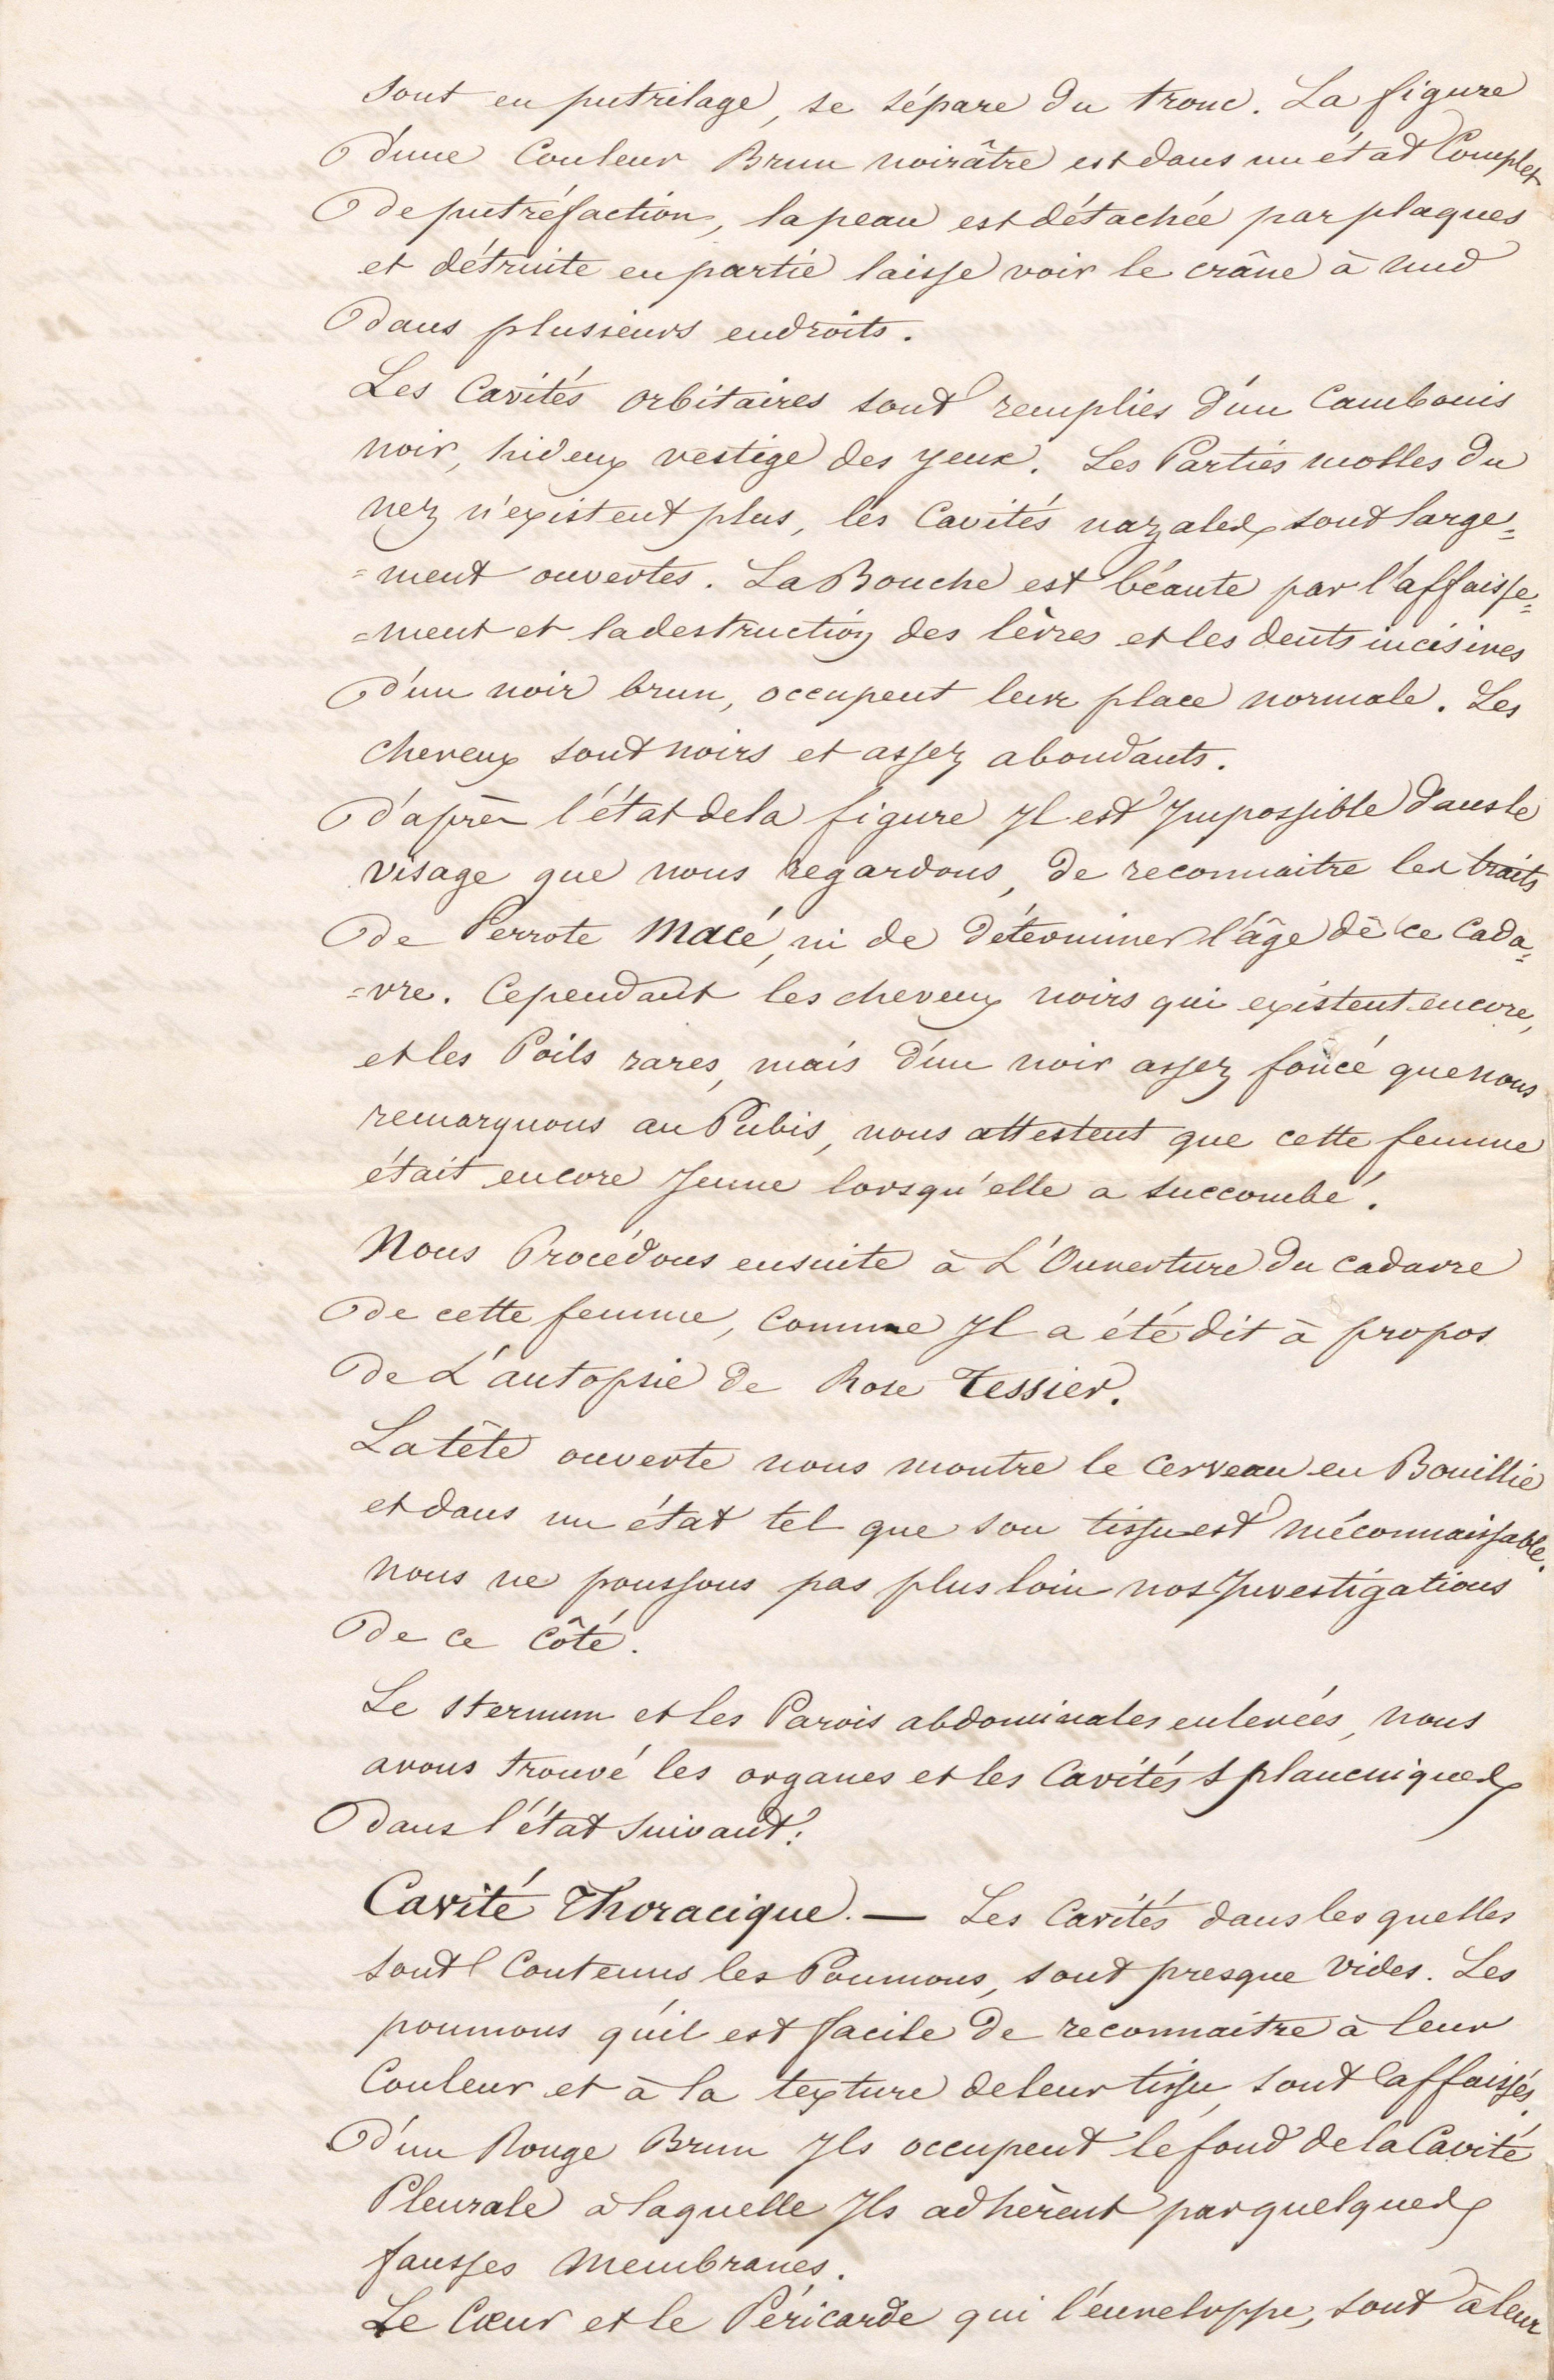 sont en putrilage, se sépare du tronc. La figure
d'une Couleur Brun noirâtre est dans un état Complet
de putréfaction, la peau est détachée par plaques
et détruite en partie laisse voir le crâne à nud
dans plusieurs endroits.
Les Cavités orbitaires sont remplies d'un Cambouis
noir, hideux vestige des yeux. Les Parties molles du
nez n'existent plus, les Cavités nazales sont large=
=ment ouvertes. La Bouche est béante par l'affaisse=
=ment et la destruction des lèvres et les dents incisives
d'un noir brun, occupent leur place normale. Les
cheveux sont noirs et assez abondants.
d'après l'état de la figure Il est Impossible dans le
visage que nous regardons, de reconnaitre les traits
de Perrote Macé, ni de déterminer l'âge de ce Cada=
=vre. Cependant les cheveux noirs qui existent encore,
et les Poils rares, mais d'un noir assez foncé que nous
remarquons au Pubis, nous attestent que cette femme
était encore Jeune lorsqu'elle a succombé.
Nous Procédons ensuite à L'Ouverture du cadavre
de cette femme, Comme Il a été dit à propos
de L'autopsie de Rose Tessier.
La tête ouverte nous montre le Cerveau en Bouillie
et dans un état tel que son tissu est méconnaissable.
nous ne poussons pas plus loin nos Investigations
de ce Côté.
Le Sternum et les Parois abdominales enlevées, nous
avons trouvé les organes et les Cavités Splancniques
dans l'état suivant:
Cavité Thoracique. — Les Cavités dans les quelles
sont Contenus les Poumons, sont presque Vides. Les
poumons qu'il est facile de reconnaitre à leur
Couleur et à la texture de leur tissu, sont affaissés,
d'un Rouge Brun Ils occupent le fond de la Cavité
Pleurale à laquelle Ils adhèrent par quelques
fausses Membranes.
Le Cœur et le Péricarde qui l'enveloppe, sont à leur